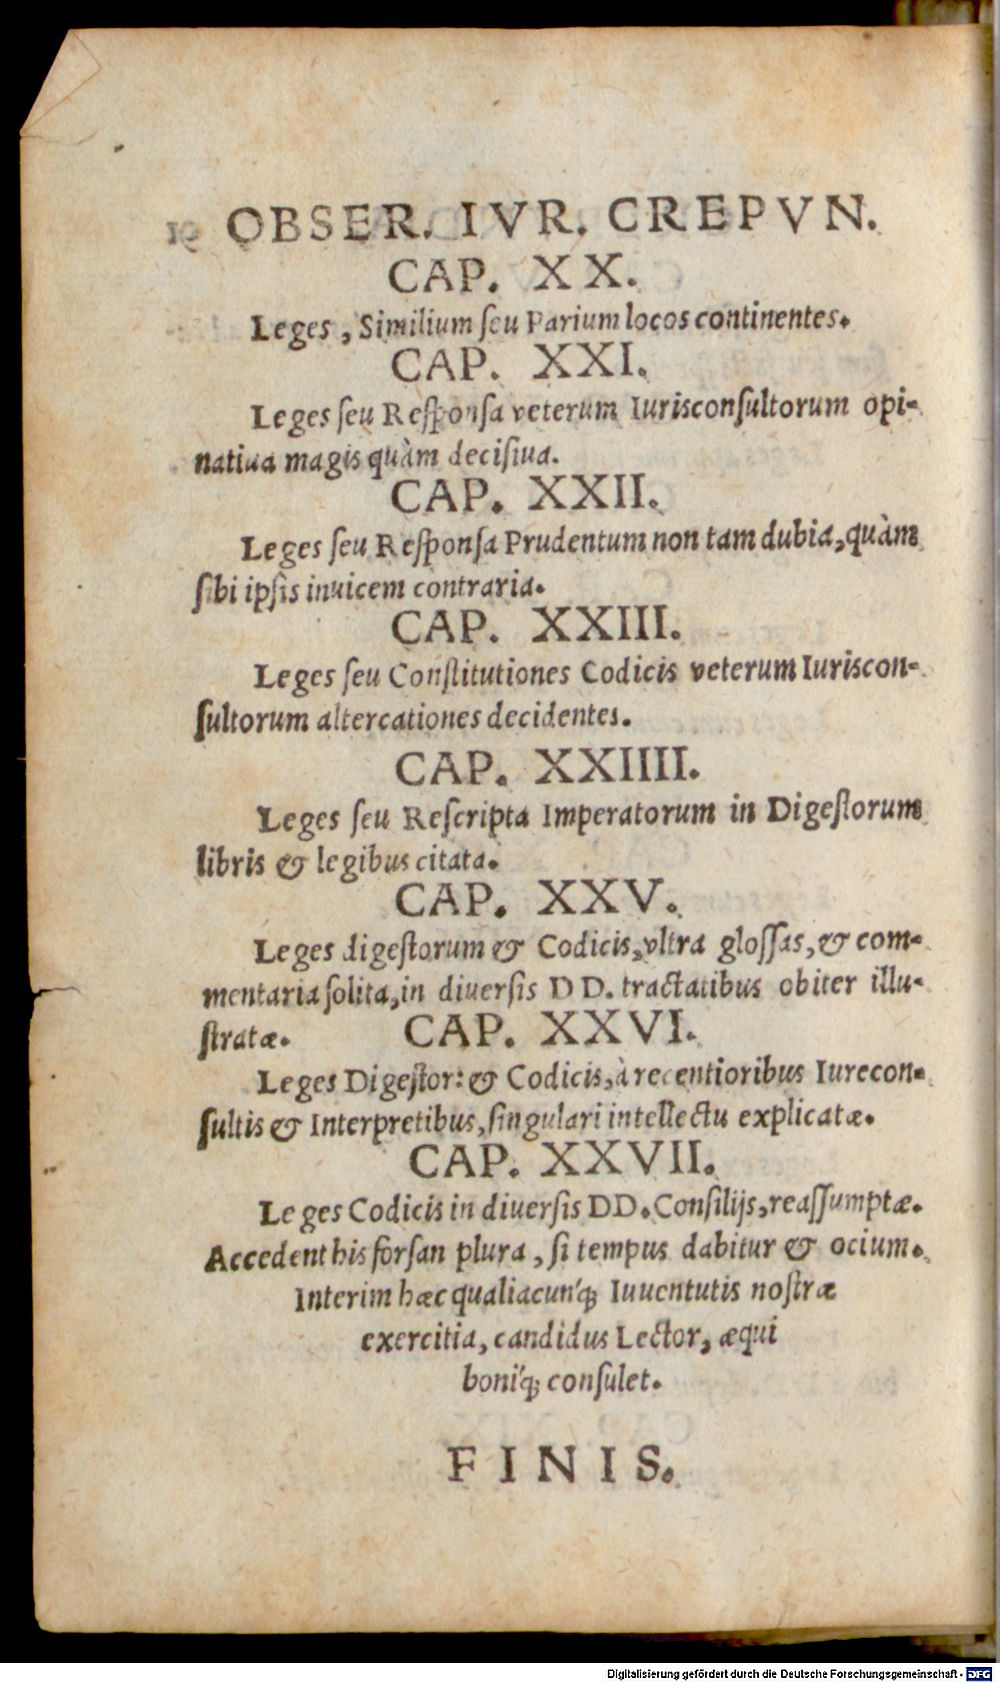 OBSER. IVR. CREPVN.
CAP. XX.
Leges, Similium ſeu Parium locos continentes.
CAP. XXI.
Leges ſeu Reſponſa veterum Iurisconſultorum opi-
natiua magis quàm deciſiua.
CAP. XXII.
Leges ſeu Reſponſa Prudentum non tam dubia, quàm
ſibi ipſis inuicem contraria.
CAP. XXIII.
Leges ſeu Conſtitutiones Codicis veterum Iuriscon-
ſultorum altercationes decidentes.
CAP. XXIIII.
Leges ſeu Reſcripta Imperatorum in Digeſtorum
libris & legibus citata.
CAP. XXV.
Leges digeſtorum & Codicis, vltra gloſſas, & com-
mentaria ſolita, in diuerſis DD. tractatibus obiter illu-
ſtratæ. CAP. XXVI.
Leges Digeſtor: & Codicis, à recentioribus Iurecon-
ſultis & Interpretibus, ſingulari intellectu explicatæ.
CAP. XXVII.
Leges Codicis in diuerſis DD. Conſilijs, reaſſumptæ.
Accedent his forſan plura, ſi tempus dabitur & ocium.
Interim hæc qualiacunq́; Iuuentutis noſtræ
exercitia, candidus Lector, æqui
boniq́; conſulet.
FINIS.
Digitalisierung gefördert durch die Deutsche Forschungsgemeinschaft - DFG